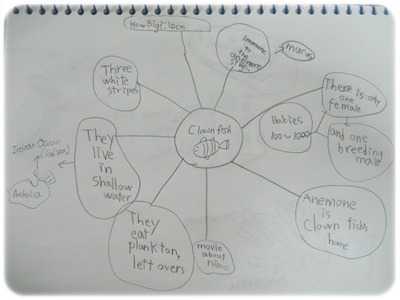 How Big?: 10cm
Immune
to the
mucus
Three
white
stripes
There is only
one
female
Babies
100~1000
and one
breeding
male
Clown fish
They
live
in
shallow
water
Indian Ocean
Anemone
is
Clown fish's
home
They
eat
plankton,
left overs
movie
about
nimo